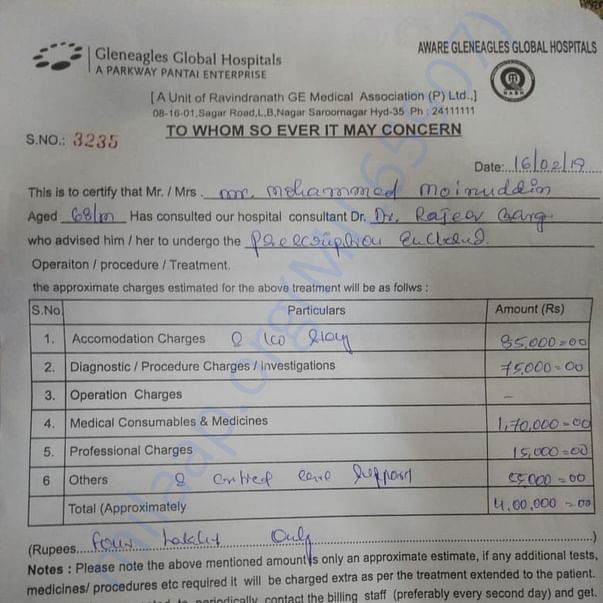 Gleneagles Global Hospitals
A PARKWAY PANTAI ENTERPRISE
AWARE GLENEAGLES GLOBAL HOSPITALS
[ A Unit of Ravindranath GE Medical Association (P) Ltd.,]
08-16-01,Sagar Road,L,B,Nagar Saroornagar Hyd-35 Ph : 24111111
S.NO.: 3235
TO WHOM SO EVER IT MAY CONCERN
Date: 16/02/19
This is to certify that Mr. / Mrs . mr. mohammed moinuddin
Aged 68/m Has consulted our hospital consultant Dr. Dr. Rajeev Garg
who advised him / her to undergo the Prescription Enclosed.
Operaiton / procedure / Treatment.
the approximate charges estimated for the above treatment will be as follws :
S.No. Particulars Amount (Rs)
1. Accomodation Charges & ICU Stay 85,000=00
2. Diagnostic / Procedure Charges / Investigations 75,000=00
3. Operation Charges –
4. Medical Consumables & Medicines 1,70,000=00
5. Professional Charges 15,000=00
6 Others & critical care support 55,000=00
Total (Approximately 4,00,000=00
(Rupees four lakhs only )
Notes : Please note the above mentioned amount is only an approximate estimate, if any additional tests,
medicines/ procedures etc required it will be charged extra as per the treatment extended to the patient.
periodically contact the billing staff (preferably every second day) and get.